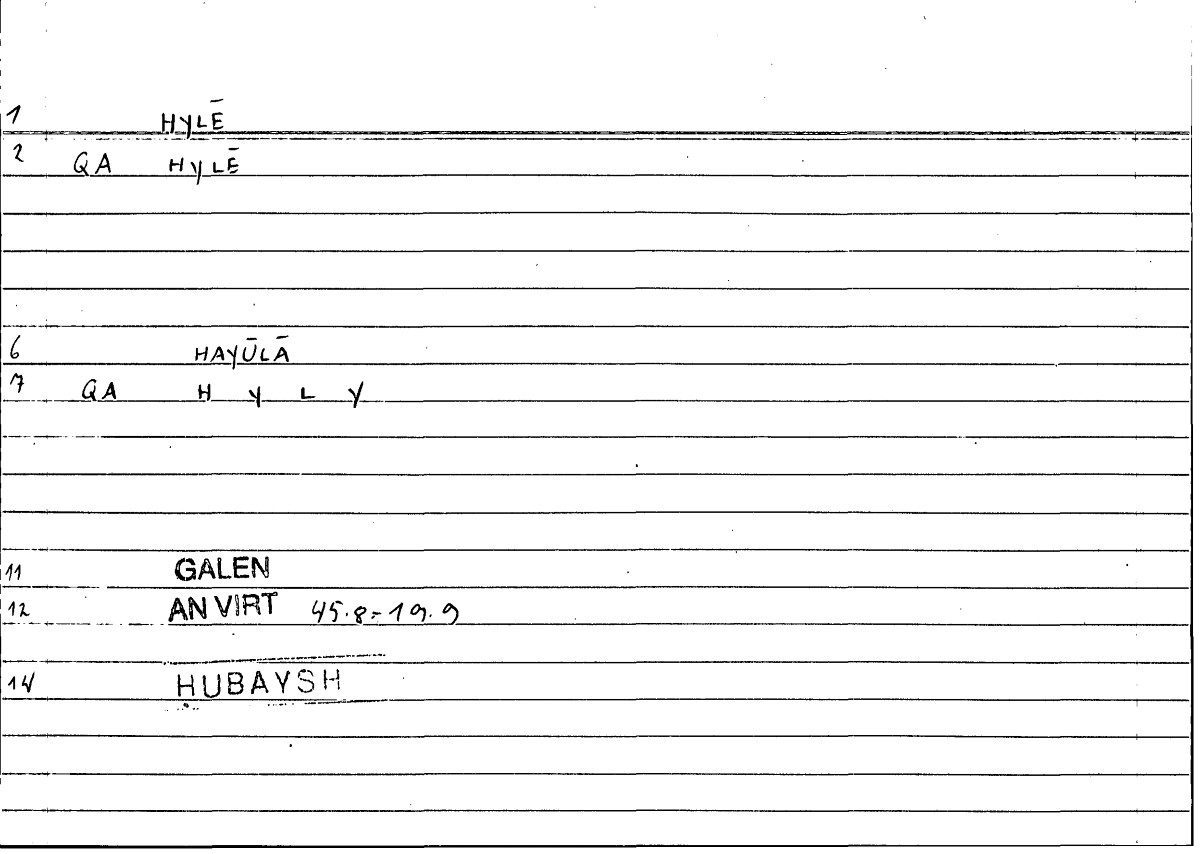 1 HYLĒ
2 QA HYLĒ
6 HAYŪLĀ
7 QA H Y L Y
11 GALEN
12 AN VIRT 45.8=19.9
14 HUBAYSH